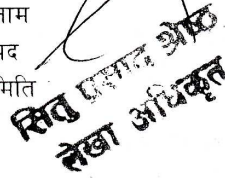 नाम
पद
मिति
सितु प्रसाद श्रेष्ठ
लेखा अधिकृत